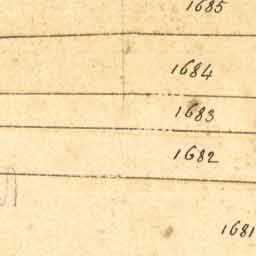 1685
1684
1683
1682
1681